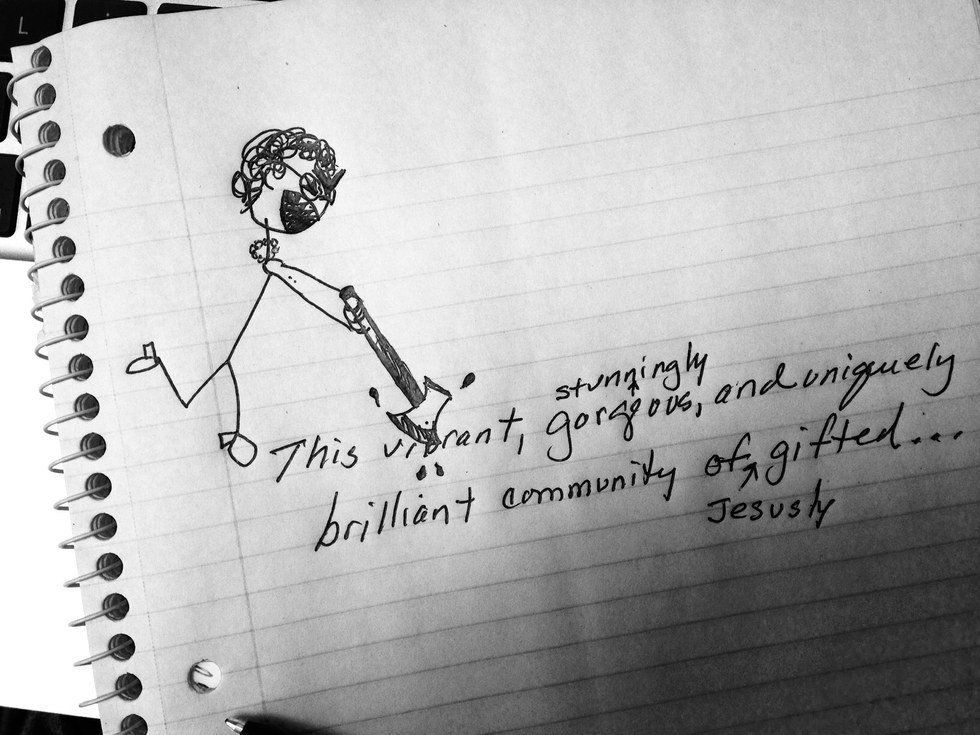 L
stunningly
This vibrant, gorgeous, and uniquely
brilliant community of gifted...
Jesusly